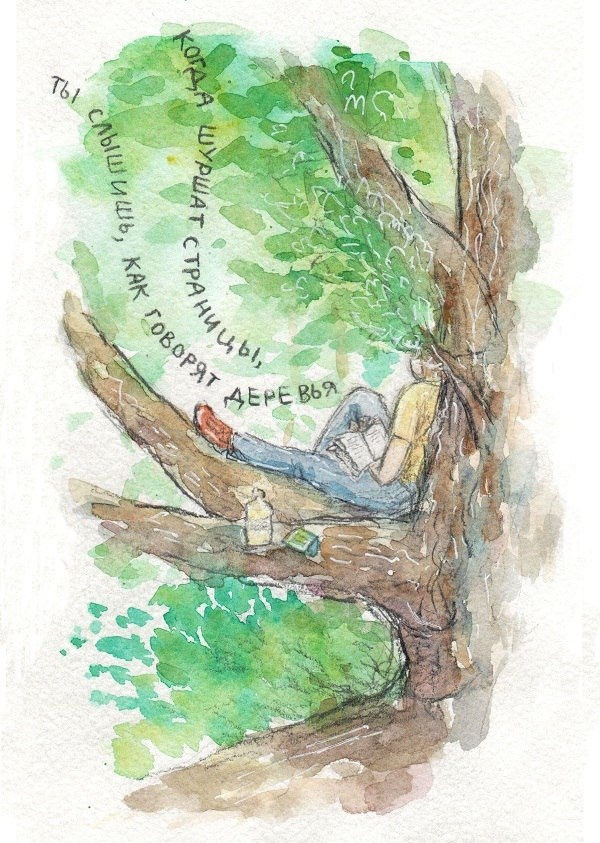 когда шуршат страницы,
ты слышишь, как говорят деревья